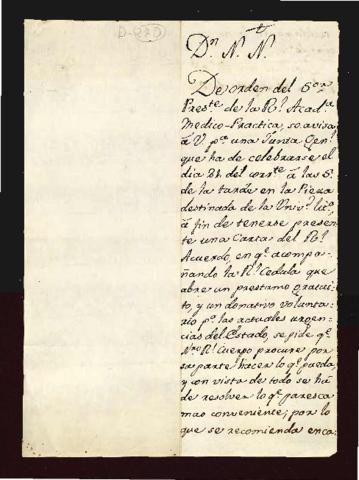 D-97D
Dn. N. N.
De orden del Sor.
Preste. de la Rl. Acada.
Medico-Practica, se avisa
á V. pa. una Junta Genl.
que ha de celebrarse el
dia 24 del corrte. á las 5.
de la tarde en la Pieza
destinada de la
á fin de tenerse presen-
te una Carta del Rl.
Acuerdo, en qe. acompa-
ñando la Rl. Cedula que
abre un prestamo gratui-
to, y un donativo volunta-
rio pa. las actuales urgen-
cias del Estado, se pide qe.
Nro. Rl. Cuerpo procure por
su parte hacer lo qe. pueda,
y con vista de todo se há
de resolver lo qe. paresca
mas conveniente; por lo
que se recomienda enca-